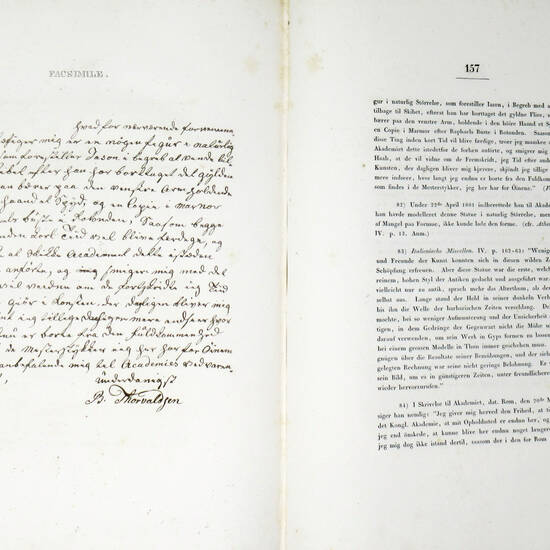 FACSIMILE.
hvad for nærværende
mig er en nøgen figur i naturlig
som forestiller Jason i begreb at vende til
efter han har borttaget det gylden
han bærer paa den venstre Arm, holdende
haand et Spyd; og en copie i marmor
byste i Rotonden, Saasom begge
Tid vil blive færdige, og
Academiet dette isteden
anførte, og smiger mig med det
vil vendes an de forløbende Tid
giør i konsten, der dagligen bliver mig
og tillige mere andseer hvor
er borte fra den fuldkommenhed
de Mesterstykker jeg her har for Öinene
anbefalende mig til Academies velvaren
Underdanigst
B. Thorvaldsen
157
gur i naturlig Störrelse, som forestiller Iason, i Begreb med a
tilbage til Skibet, efterat han har borttaget det gyldne Flise, v
bærer paa den venster Arm, holdende i den höire Haand et S
en Copie i Marmor efter Raphaels Buste i Rotonden. Saasom
disse Ting inden kort Tid vil blive færdige, troer jeg maaskee
Akademiet dette istedetfor de forhen anförte, og smigrer mig
Haab, at de vidne om de Fremskridt, jeg Tid efter anden
Kunsten, der dagligen bliver mig kjærere, skjöndt jeg tillige
mere indseer, hvor langt jeg endnu er borte fra den Fuldkom
som findes i de Mesterstykker, jeg her har for Öinene."
82) Under 22de April 1801 indberettede han til Akademiet
have modelleret denne Statue i naturlig Störrelse, men
af Mangel paa Formue, ikke kunde lade den forme. (cfr. Athe
IV. p. 13. Anm.)
83) Italienische Miscellen. IV. p. 162-63: "Wenig
und Freunde der Kunst konnten sich in diesen wilden Z
Schöpfung erfreuen. Aber diese Statue war die erste, welch
reinem, hohen Styl der Antiken gedacht und ausgeführt war
vielleicht nur zu antik, sprach mehr das Alterthum, als de
selbst aus. Lange stand der Held in seiner dunkeln Verb
bis ihn die Welle der barbarischen Zeiten verschlang. De
bei so weniger Aufmunterung und der Unsicherheit
tigen, in dem Gedränge der Gegenwart nicht die Mühe u
darauf verwenden, um sein Werk in Gyps formen zu lassen
bei einem grossen Modelle in Thon immer geschehen muss.
gnügen über die Resultate seiner Bemühungen, und der sich
gelegten Rechnung war seine nicht geringe Belohnung. Er
sein Bild, um es in günstigeren Zeiten, unter freundlichere
wieder hervorzurufen."
84) I Skrivelse til Akademiet, dat. Rom, den 20de
siger han nemlig: "Jeg giver mig herved den Frihed, at t
det Kongl. Akademie, at mit Opholdsted er endnu her, og at
jeg end önskede, at kunne blive her endnu noget længere
jeg mig dog ikke istand dertil, saasom der i den for Rom